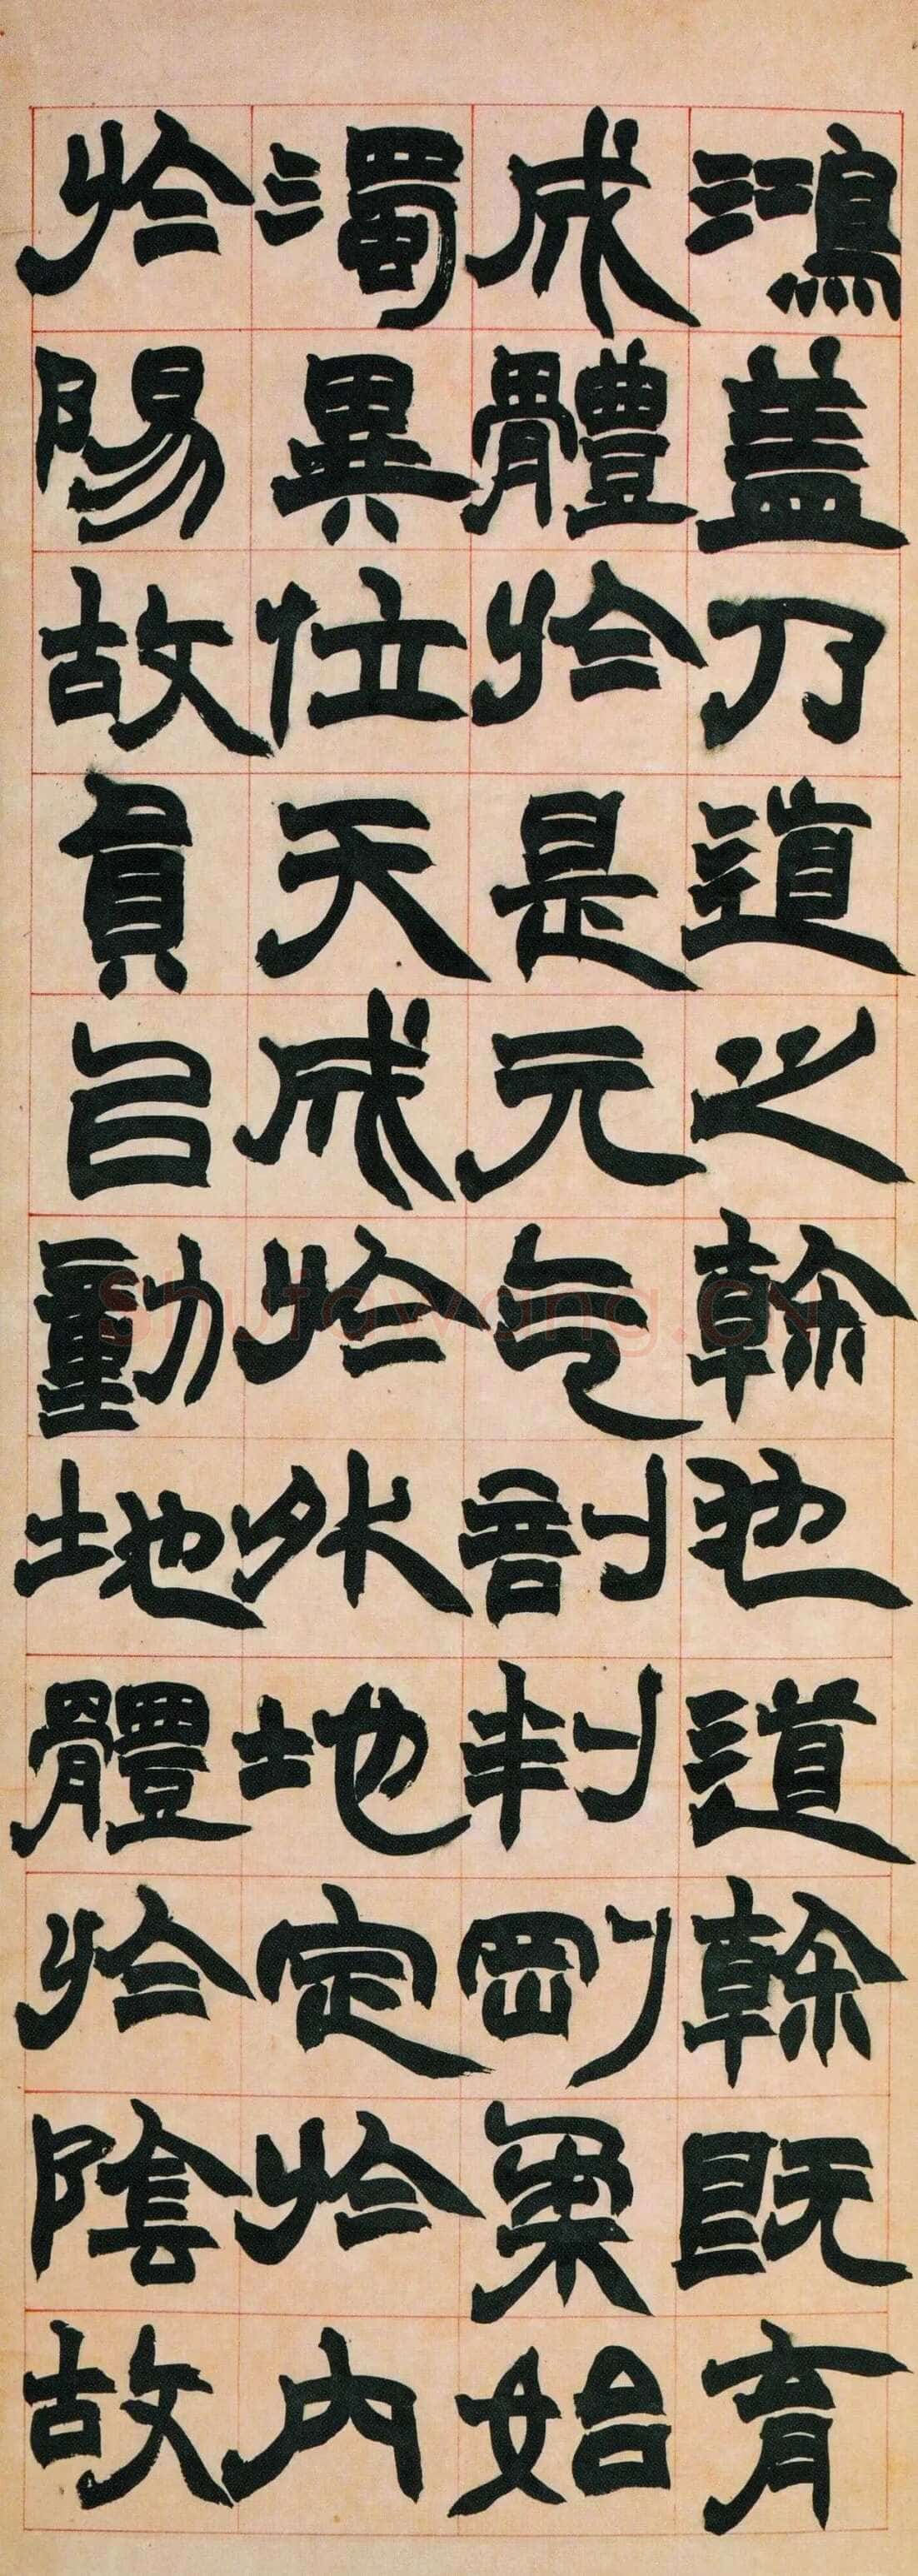 鴻蓋乃道之榦也道榦既育
成體於是元气剖判剛柔始
濁異位天成於外地定於內
於陽故員以動地體於陰故
Shufawang.CN